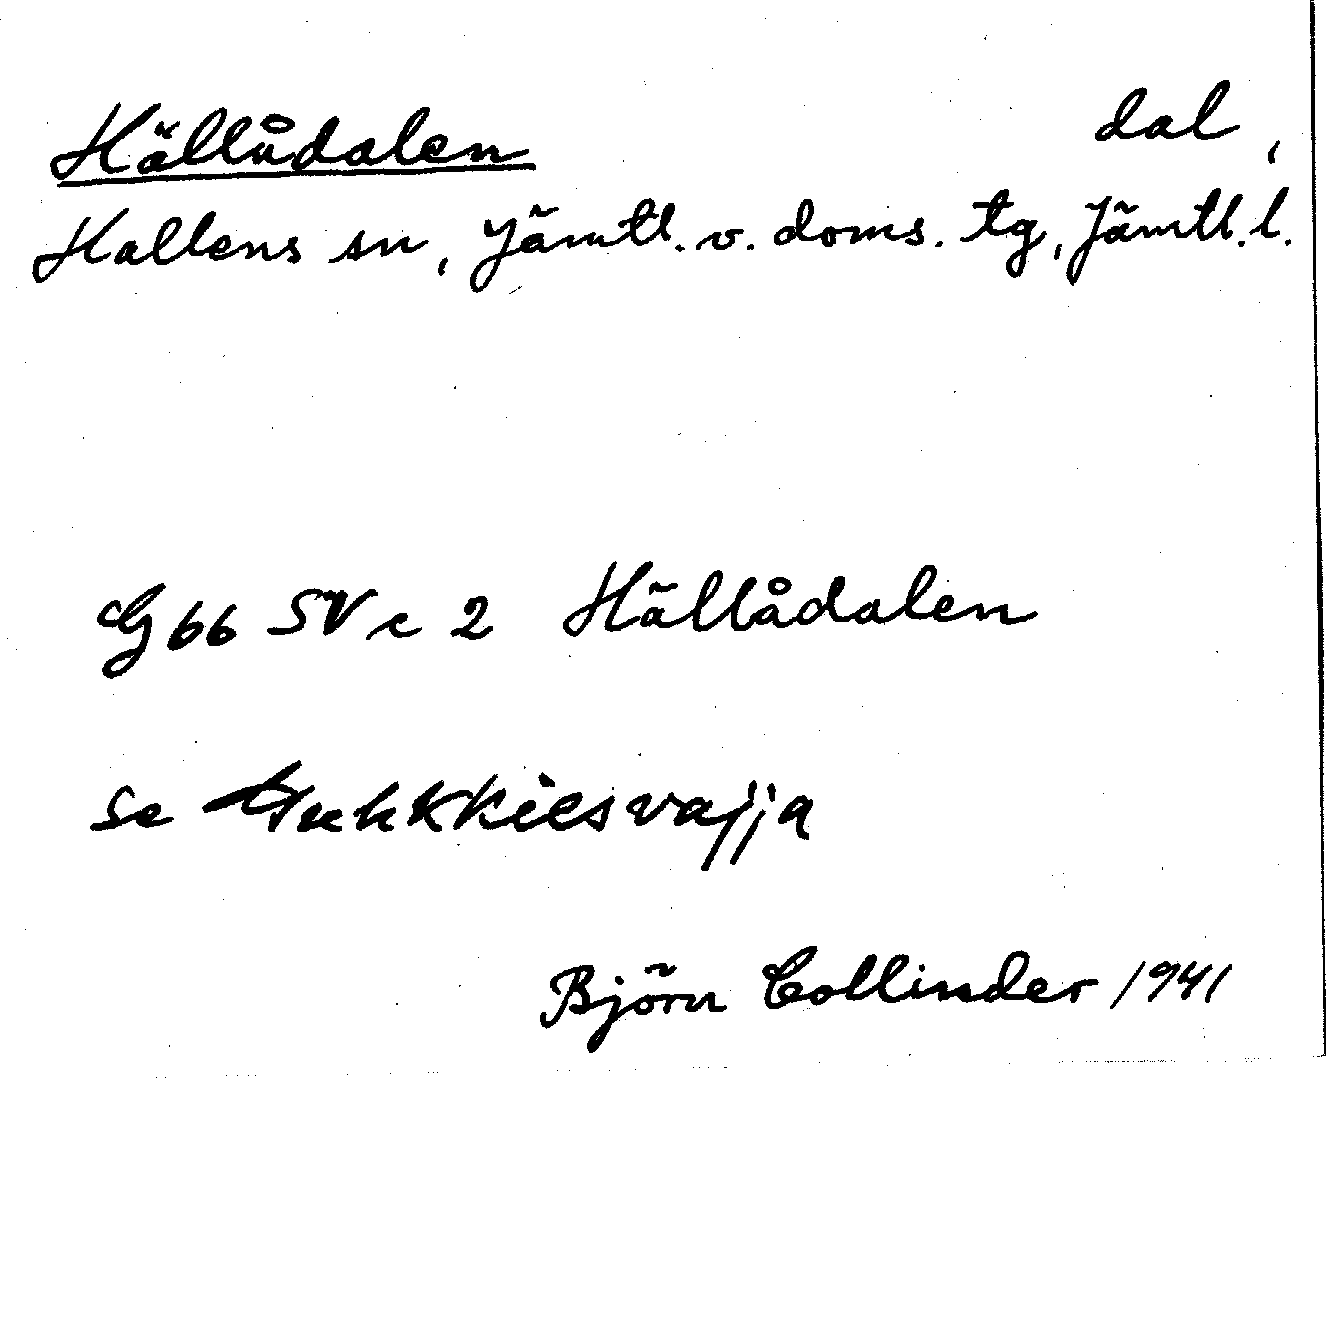 Hällådalen dal,
Hallens sn, Jämtl. v. doms. tg, Jämtl. l.
G 66 SV c 2 Hällådalen
se
Björn Collinder 1941